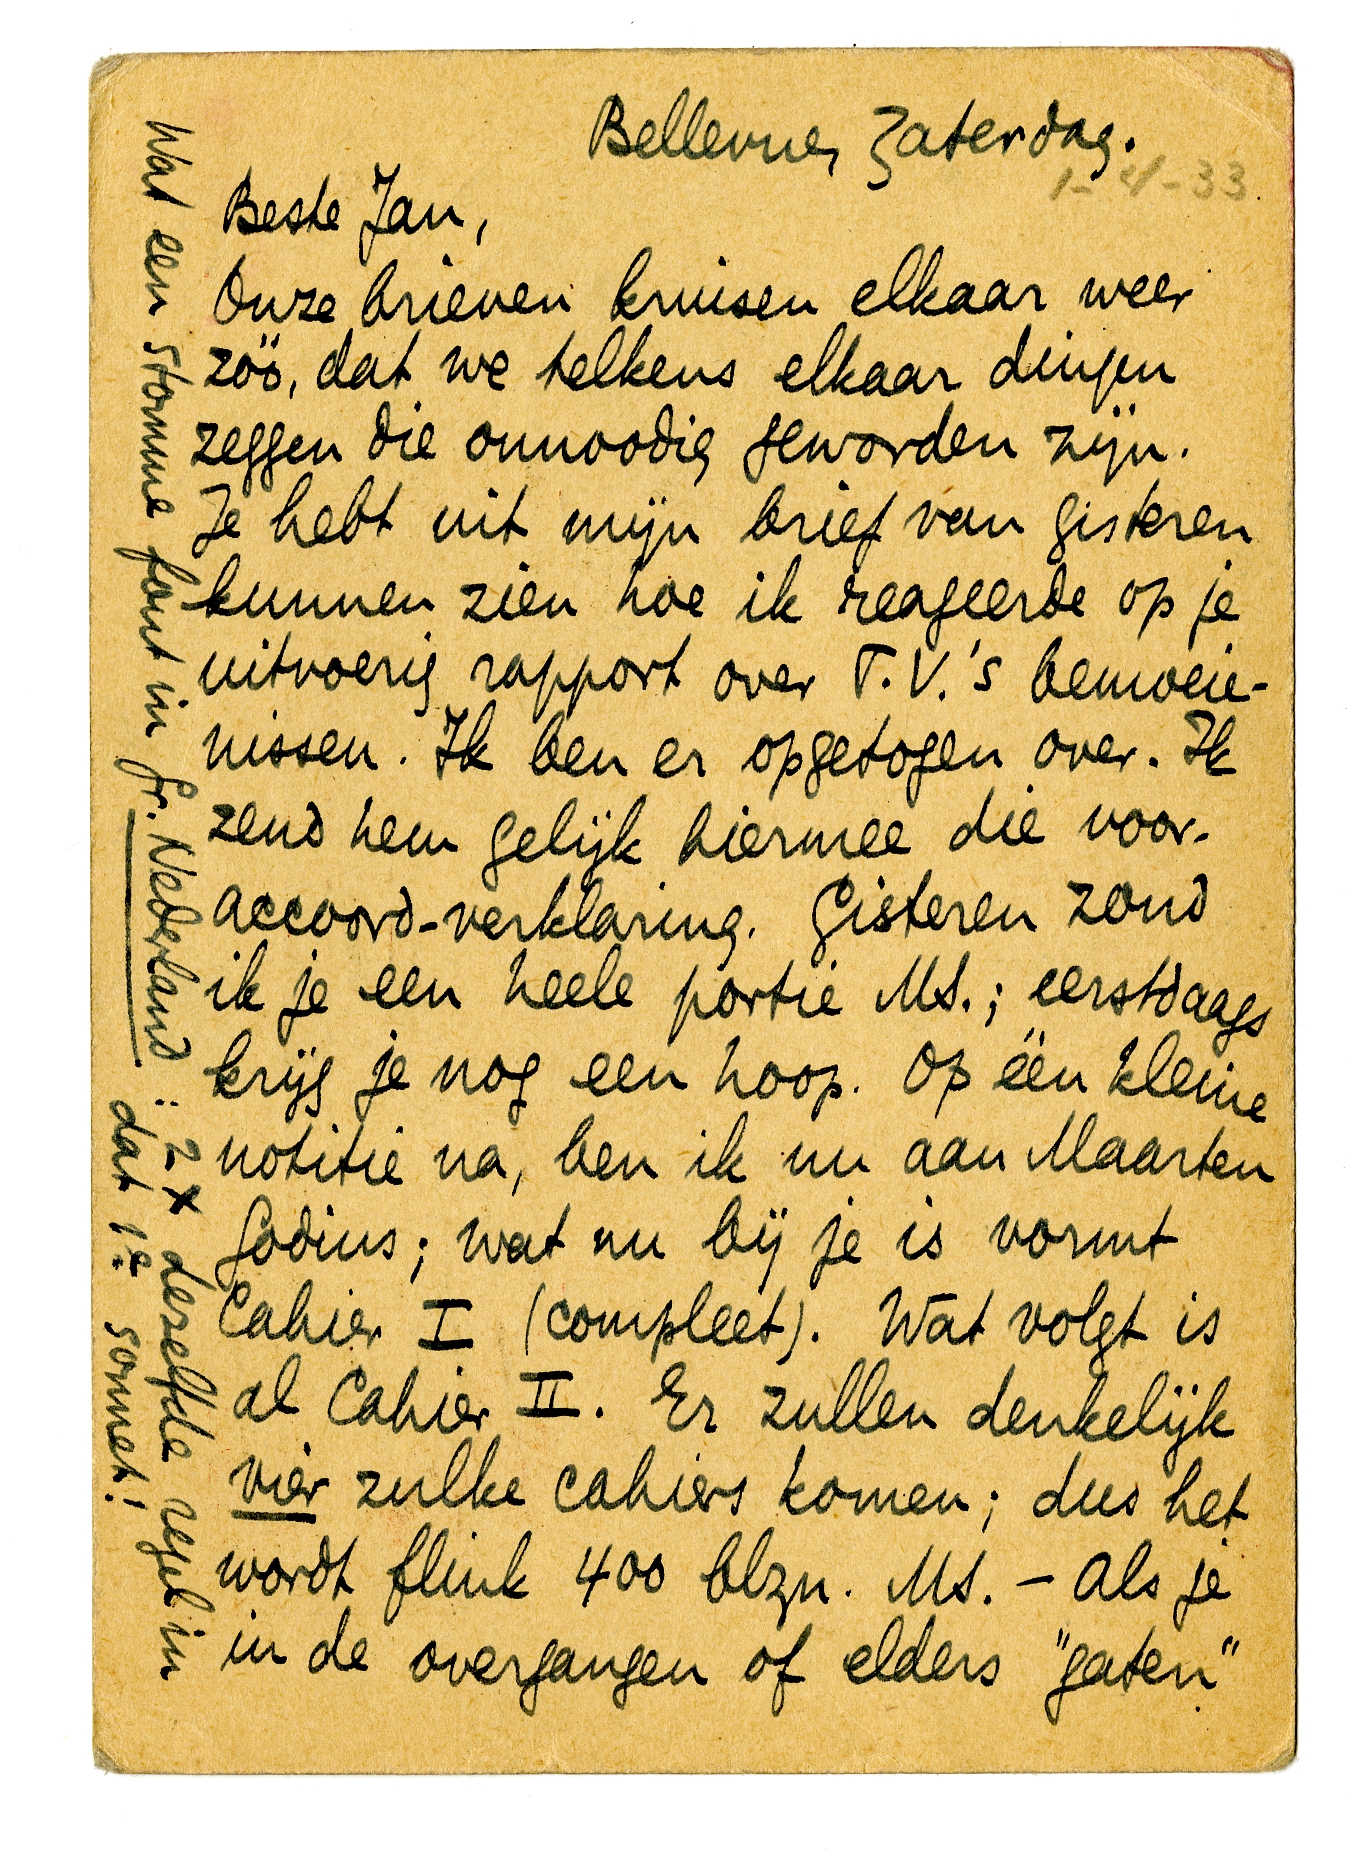 Bellevue, Zaterdag.
1-4-33.
Beste Jan,
Onze brieven kruisen elkaar weer
zóó, dat we telkens elkaar dingen
zeggen die onnoodig geworden zijn.
Je hebt uit mijn brief van gisteren
kunnen zien hoe ik reageerde op je
uitvoerig rapport over T.V.'s bemoeie-
nissen. Ik ben er opgetogen over. Ik
zend hem gelijk hiermee die voor-
accoord-verklaring. Gisteren zond
ik je een heele portie MS.; eerstdaags
krijg je nog een hoop. Op één kleine
notitie na, ben ik nu aan Maarten
Godius; wat nu bij je is vormt
Cahier I (compleet). Wat volgt is
al Cahier II. Er zullen denkelijk
vier zulke cahiers komen; dus het
wordt flink 400 blzn. MS. — Als je
in de overgangen of elders "gaten"
Wat een stomme fout in Gr. Nederland: 2 x dezelfde regel in
dat 1e sonnet!